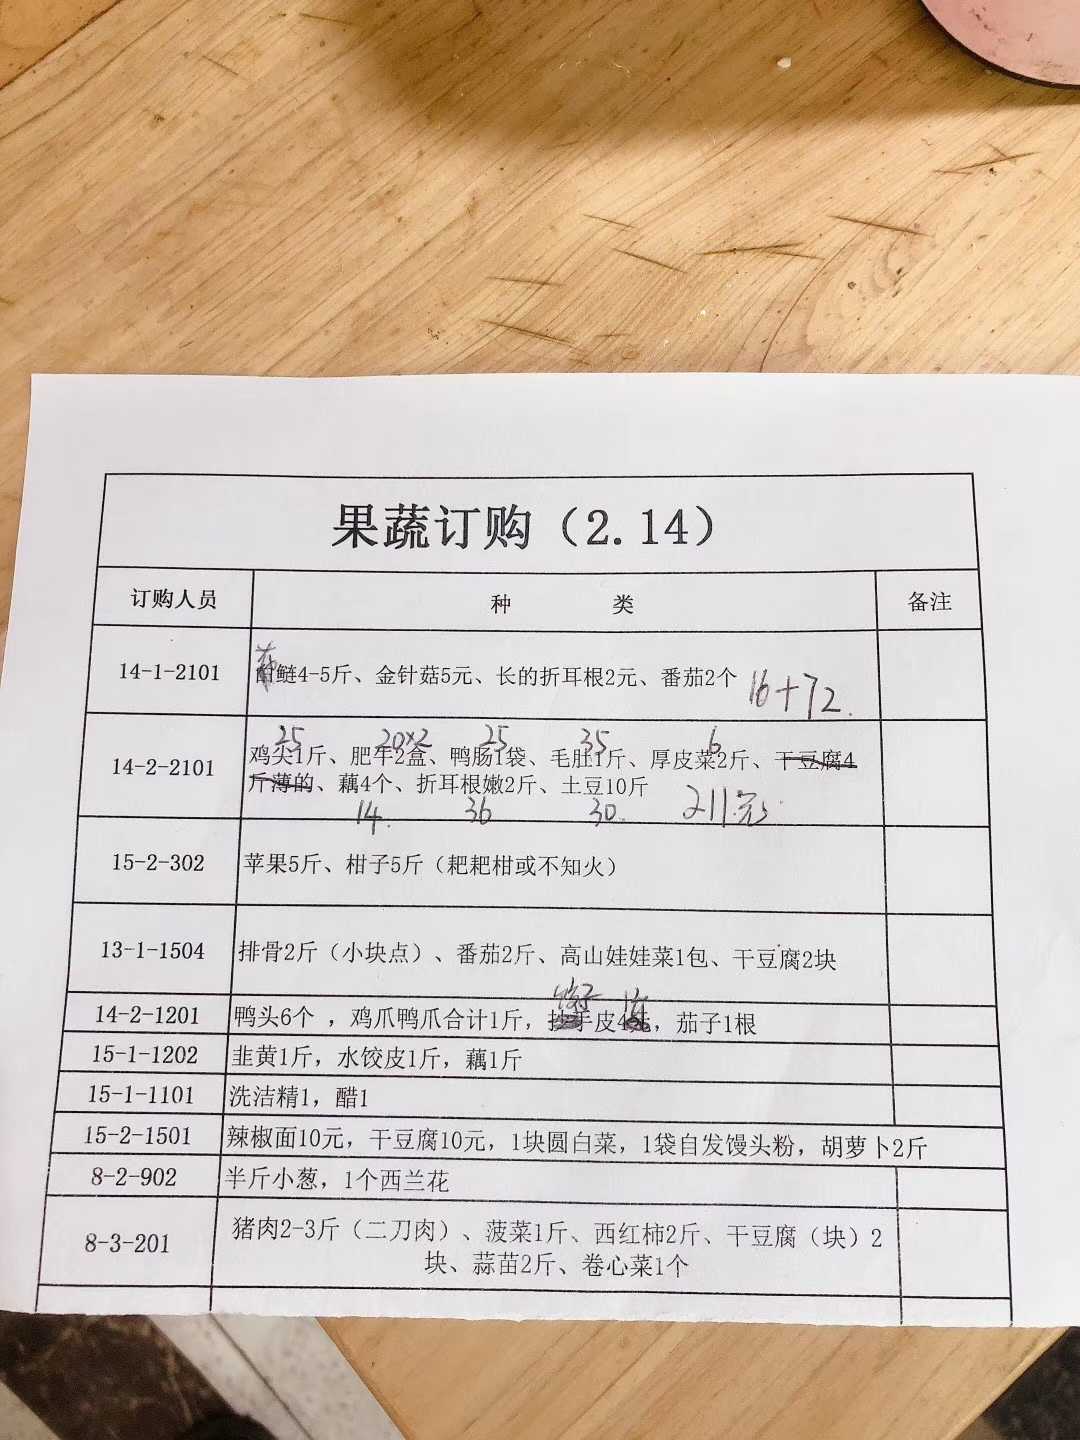 果蔬订购（2.14）
订购人员 种 类 备注
14-1-2101 花鲢4-5斤、金针菇5元、长的折耳根2元、番茄2个 16+72.
25 20×2 25 35 6
14-2-2101 鸡尖1斤、肥牛2盒、鸭肠1袋、毛肚1斤、厚皮菜2斤、干豆腐4
斤薄的、藕4个、折耳根嫩2斤、土豆10斤
14. 36 30. 211元
15-2-302 苹果5斤、柑子5斤（粑粑柑或不知火）
13-1-1504 排骨2斤（小块点）、番茄2斤、高山娃娃菜1包、干豆腐2块
饺子 1斤
14-2-1201 鸭头6个 ，鸡爪鸭爪合计1斤，抄手皮4元，茄子1根
15-1-1202 韭黄1斤，水饺皮1斤，藕1斤
15-1-1101 洗洁精1，醋1
15-2-1501 辣椒面10元，干豆腐10元，1块圆白菜，1袋自发馒头粉，胡萝卜2斤
8-2-902 半斤小葱，1个西兰花
8-3-201 猪肉2-3斤（二刀肉）、菠菜1斤、西红柿2斤、干豆腐（块）2
块、蒜苗2斤、卷心菜1个